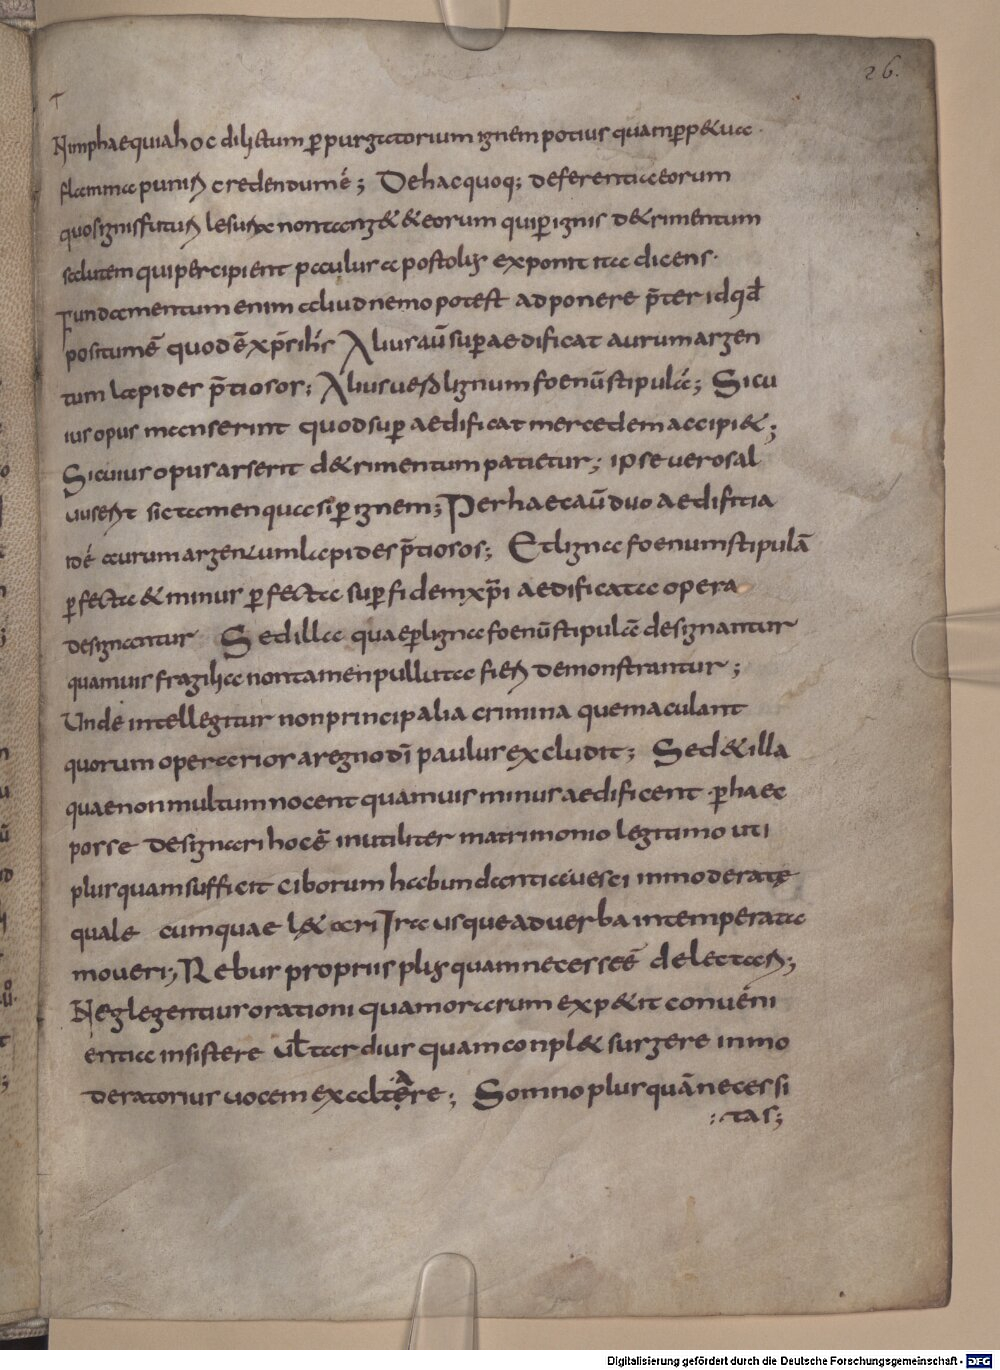 26.
Nimphaequiahoc dilictum p̲purgatorium ignem potius quamp̲p&ua
flamma puniri credendum ē; Dehacquoq; deferentiaeorum
quosignisfuturi lesurae nontang& &eorum quip̲ignis d&rimentum
salutem quipercipient paulus apostolus exponit ita dicens.
Fundamentum enim aliud nemo potest adponere p̄ter id qđ
positumē quod ē xp̄s ihs Alius aū sup̲aedificat aurum argen
tum lapides p̄tiosos; Alius uero lignum foenū stipulā; Sicu
ius opus manserint quod sup̲aedificat mercedem accipi&;
Sicuius opus arserit d&rimentum patietur; ipse uero sal
uus erit sic tamen quasi p̲ ignem; Per haec aū duo aedifitia
idē aurum argentum lapides p̄tiosos; Et ligna foenum stipulā
p̲fecta & minus p̲fecta sup̲ fidem xp̄i aedificata opera
designantur Sed illa quae p̲ ligna foenū stipulā designantur
quamuis fragilia non tamen polluta fieri demonstrantur;
Unde intellegitur non principalia crimina que maculant
quorum operarios a regno dī paulus excludit; Sed & illa
quae non multum nocent quamuis minus aedificent p̲ haec
posse designari hoc ē inutiliter matrimonio legitimo uti
plusquam sufficit ciborum habundantia uesci inmoderatę
quale cumquae l&ari Ira usque ad uerba intemperata
moueri; Rebus propriis plus quam necesse ē delectari;
Neglegentius orationi quam orarum exp&it conueni
entia insistere ul̄ tardius quam conpl& surgere inmo
deratorius uocem exaltare; Somno plus quā necessi
:tas;
Digitalisierung gefördert durch die Deutsche Forschungsgemeinschaft - DFG